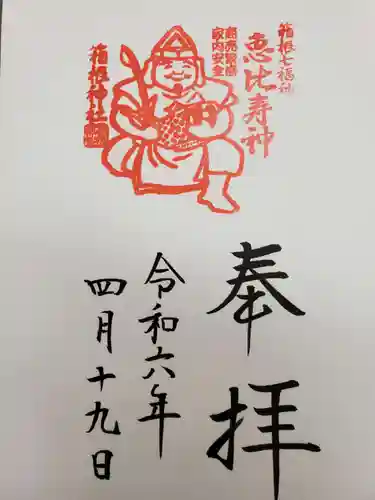 箱根七福神
恵比寿神
商売繁盛
家内安全
箱根神社
奉拝
令和六年
四月十九日